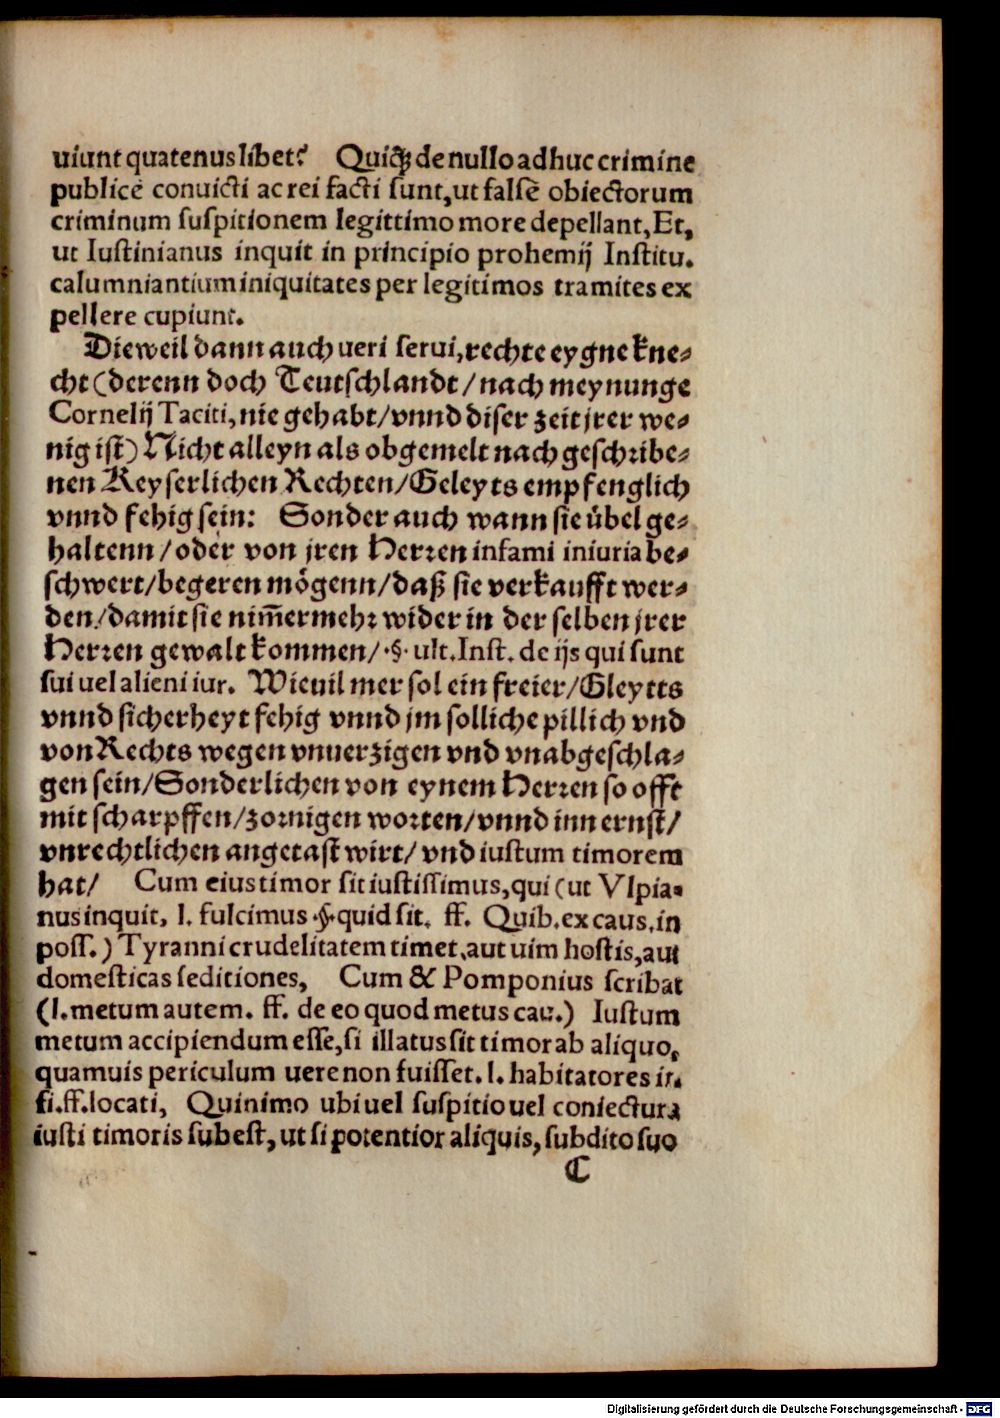 uiunt quatenus libet? Quiq́; de nullo adhuc crimine
publicè conuicti ac rei facti sunt, ut falsè obiectorum
criminum suspitionem legittimo more depellant, Et,
ut Iustinianus inquit in principio prohemij Institu.
calumniantium iniquitates per legitimos tramites ex
pellere cupiunt.
Dieweil dann auch ueri serui, rechte eygne kne⸗
cht (derenn doch Teutschlandt / nach meynunge
Cornelij Taciti, nie gehabt / vnnd diser zeit jrer we⸗
nig ist) Nicht alleyn als obgemelt nach geschribe⸗
nen Keyserlichen Rechten / Geleyts empfenglich
vnnd fehig sein: Sonder auch wann sie übel ge⸗
haltenn / oder von jren Herren infami iniuria be⸗
schwert / begeren mögenn / daß sie verkaufft wer⸗
den / damit sie nim̄ermehr wider in der selben jrer
Herren gewalt kommen / .§. ult. Inst. de ijs qui sunt
sui uel alieni iur. Wieuil mer sol ein freier / Gleytts
vnnd sicherheyt fehig vnnd jm solliche pillich vnd
von Rechts wegen vnuerzigen vnd vnabgeschla⸗
gen sein / Sonderlichen von eynem Herren so offt
mit scharpffen / zornigen worten / vnnd inn ernst /
vnrechtlichen angetast wirt / vnd iustum timorem
hat / Cum eius timor sit iustissimus, qui (ut Vlpia⸗
nus inquit, l. fulcimus .§. quid sit. ff. Quib. ex caus. in
poss.) Tyranni crudelitatem timet, aut uim hostis, aut
domesticas seditiones, Cum & Pomponius scribat
(l. metum autem. ff. de eo quod metus cau.) Iustum
metum accipiendum esse, si illatus sit timor ab aliquo,
quamuis periculum uere non fuisset. l. habitatores in
fi. ff. locati, Quinimo ubi uel suspitio uel coniectura
iusti timoris subest, ut si potentior aliquis, subdito suo
C
Digitalisierung gefördert durch die Deutsche Forschungsgemeinschaft - DFG